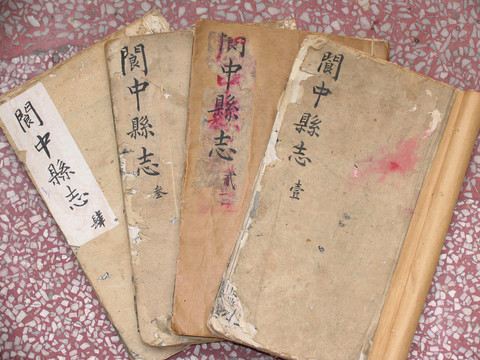 閬中縣志 肆
閬中縣志 叁
閬中縣志 貳
閬中縣志 壹